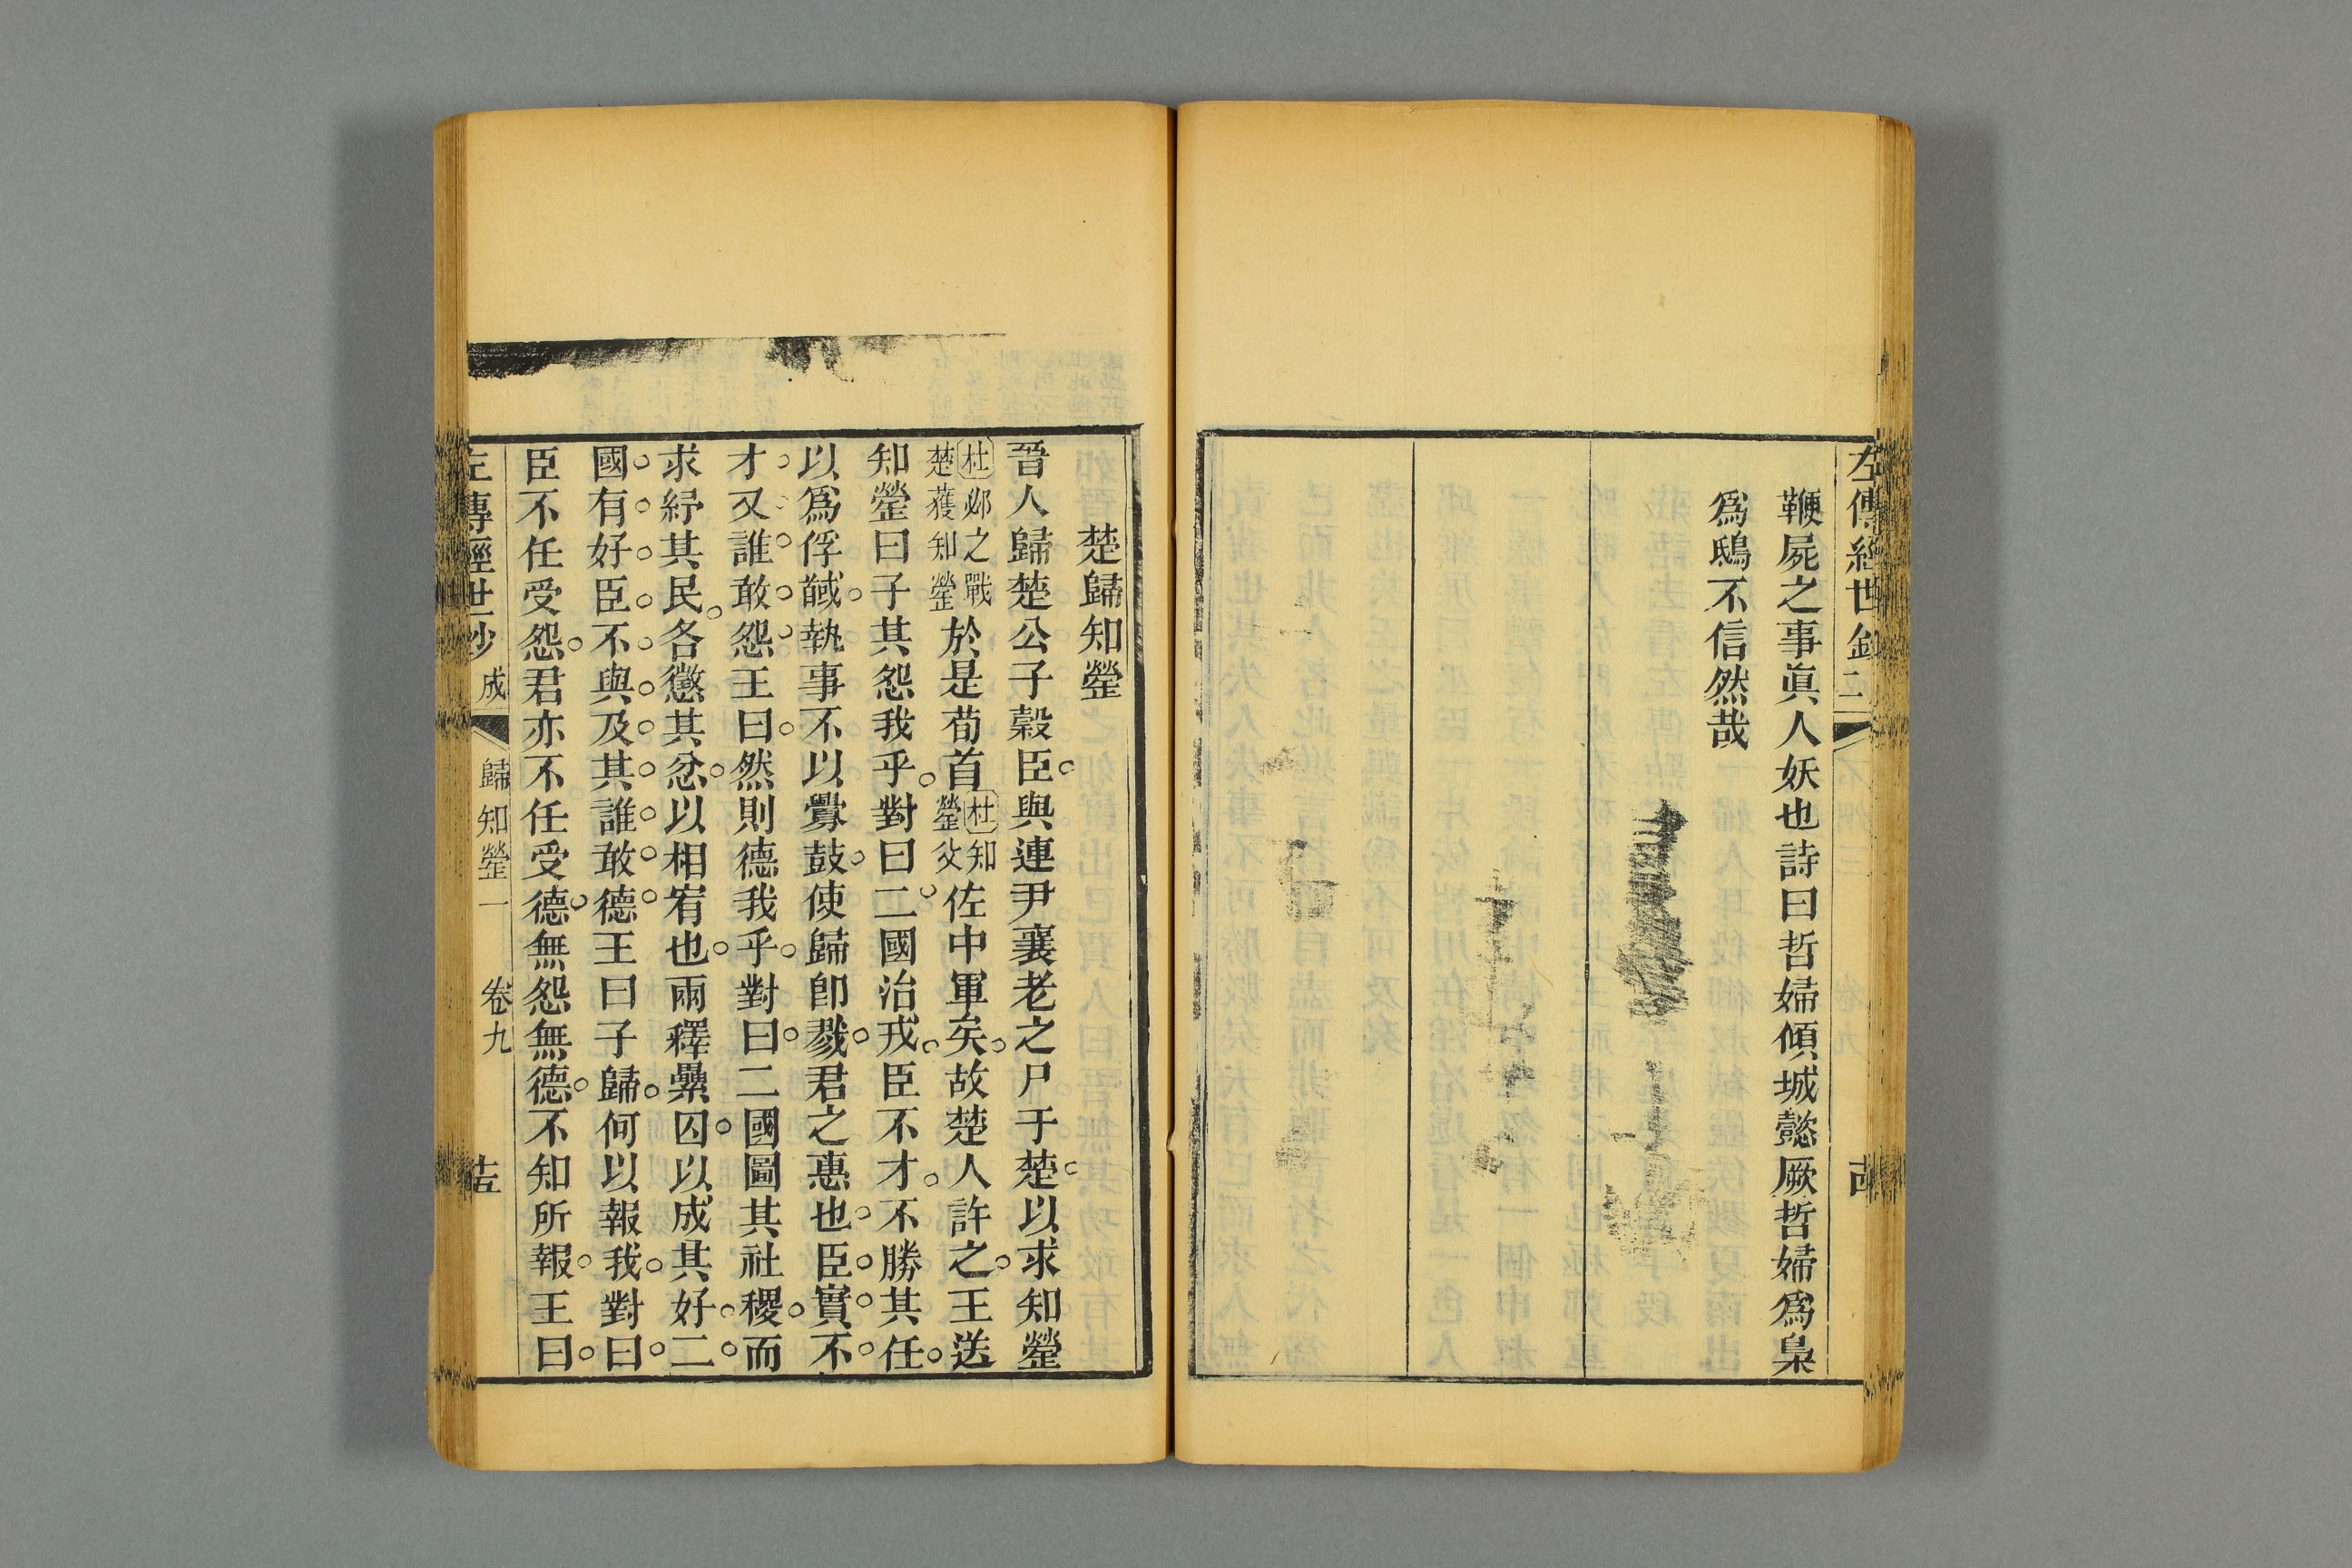 左傳經世鈔
鞭屍之事眞人妖也詩曰哲婦傾城懿厥哲婦爲梟
爲鴟不信然哉
楚歸知罃
晉人歸楚公子穀臣與連尹襄老之尸于楚以求知罃
杜邲之戰楚獲知罃於是荀首杜知罃父佐中軍矣故楚人許之王送
知罃曰子其怨我乎對曰二國治戎臣不才不勝其任
以爲俘馘執事不以釁鼓使歸卽戮君之惠也臣實不
才又誰敢怨王曰然則德我乎對曰二國圖其社稷而
求紓其民各懲其忿以相宥也兩釋纍囚以成其好二
國有好臣不與及其誰敢德王曰子歸何以報我對曰
臣不任受怨君亦不任受德無怨無德不知所報王曰
左傳經世鈔 成 歸知罃一 卷九